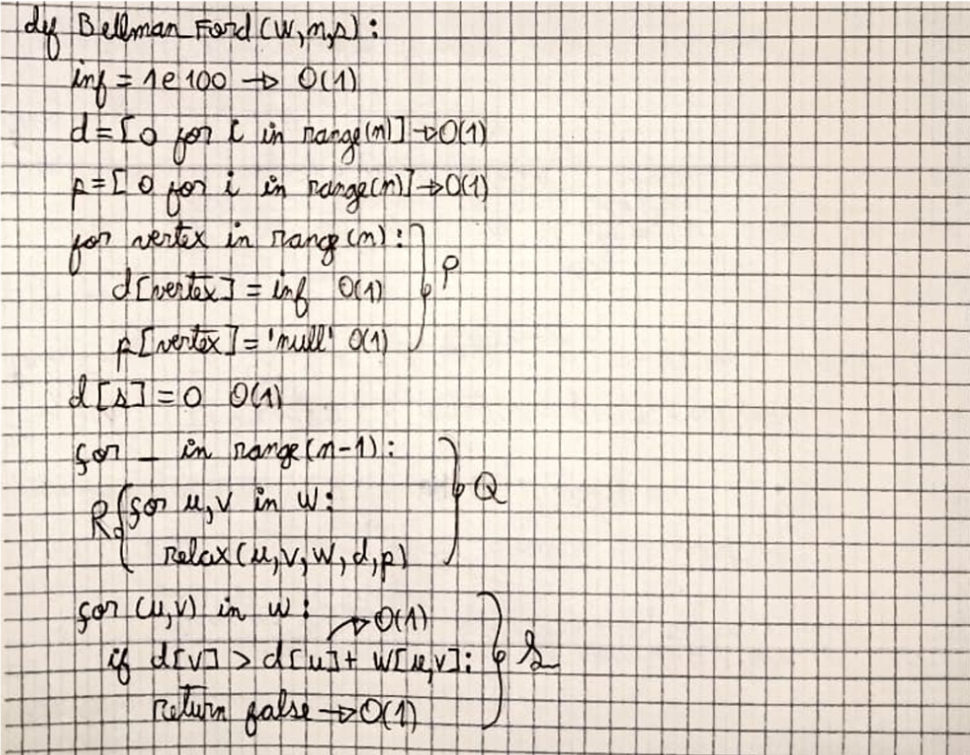 def Bellman_Ford(W,n,s):
inf = 1e100 → O(1)
d=[0 for i in range(n)] → O(1)
p=[0 for i in range(n)] → O(1)
for vertex in range(n): } P
d[vertex] = inf O(1)
p[vertex]='null' O(1)
d[s]=0 O(1)
for _ in range(n-1): } Q
R { for u,v in W:
relax(u,v,W,d,p)
for (u,v) in W: → O(1) } S
if d[v] > d[u]+ W[u,v]:
return false → O(1)